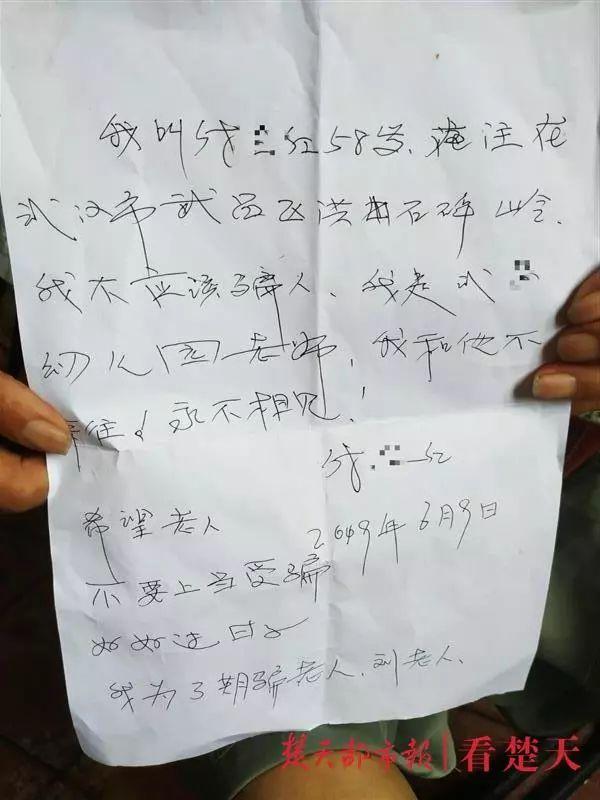 我叫钱 红58岁、梅住在
武汉市武昌区洪山石碑岭、
我不应该骗人、我是武
幼儿园老师，我和他不
来往，永不相见！
钱 红
2019年6月9日
希望老人
不要上当受骗
好好过日子
我为了期骗老人、刘老人、
楚天都市报 看楚天